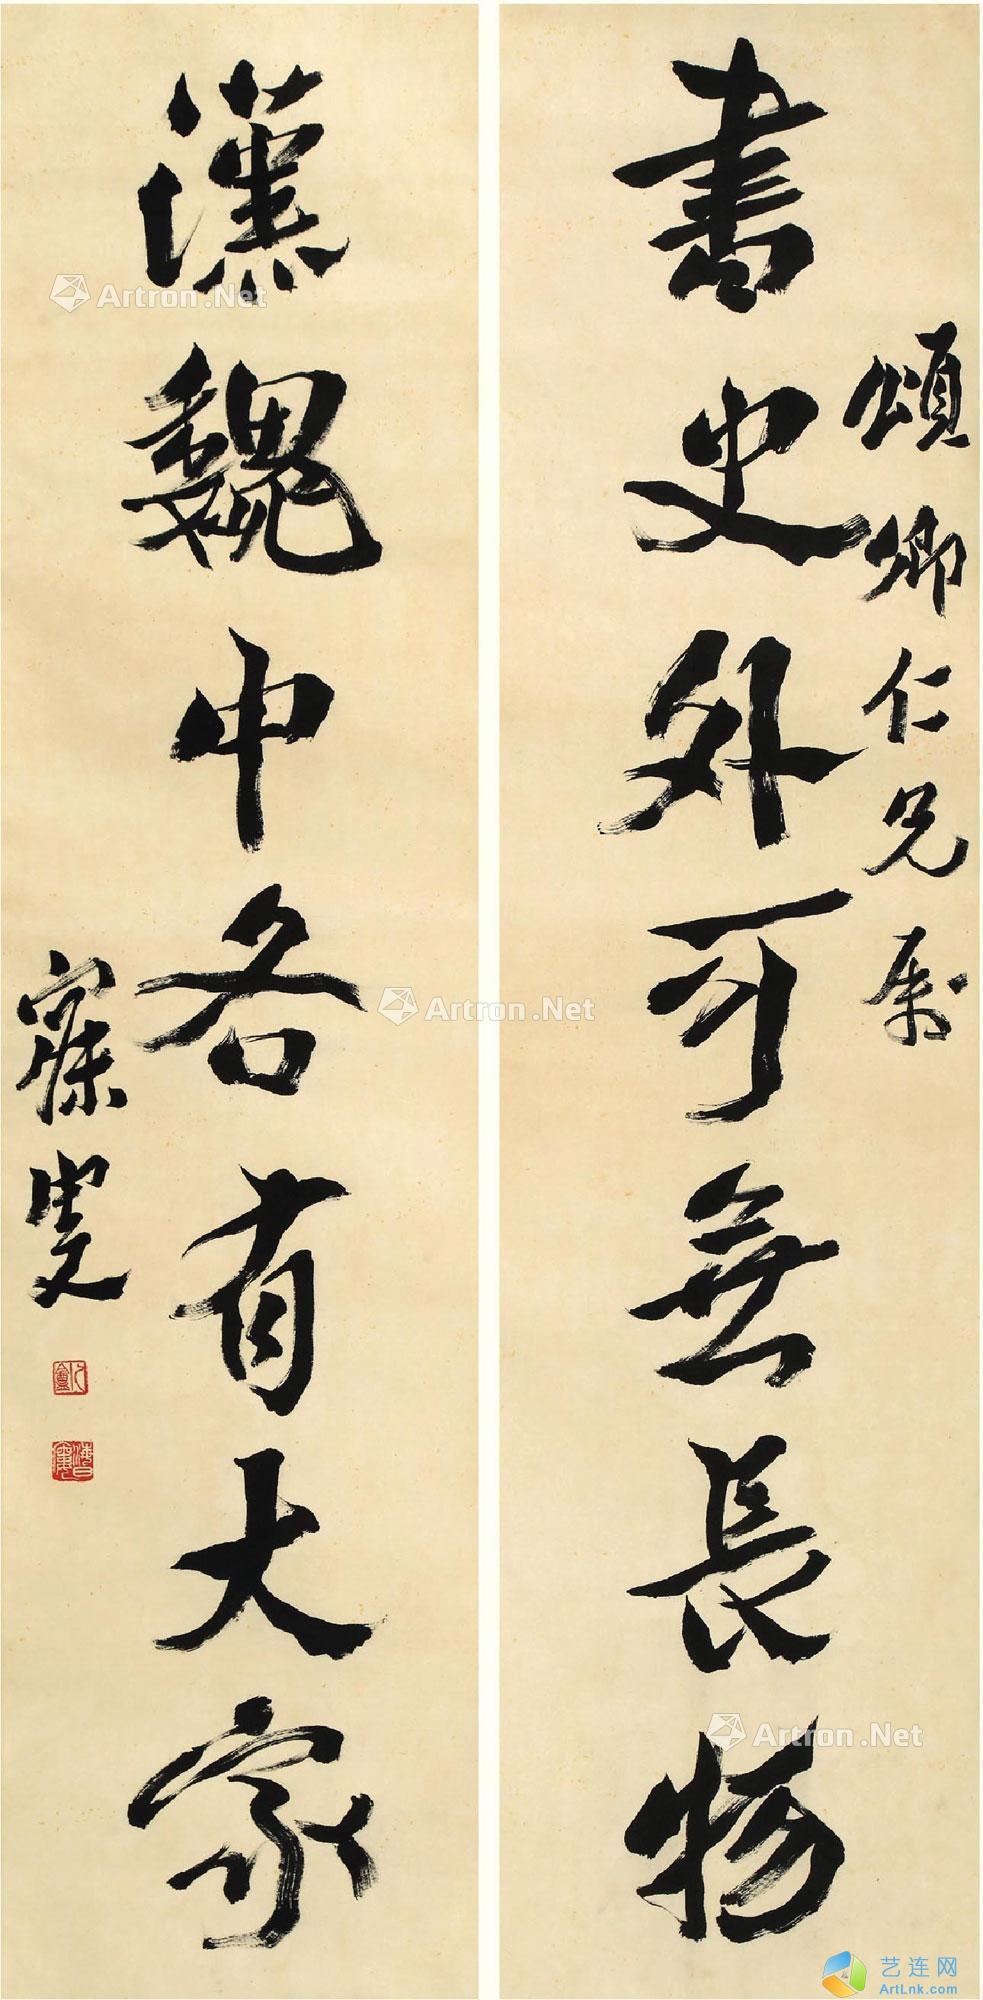 頌卿仁兄屬
書史外可無長物
漢魏中各有大家
寐叟
海日廔
Artron.Net
Artron.Net
Artron.Net
艺连网
ArtLnk.com